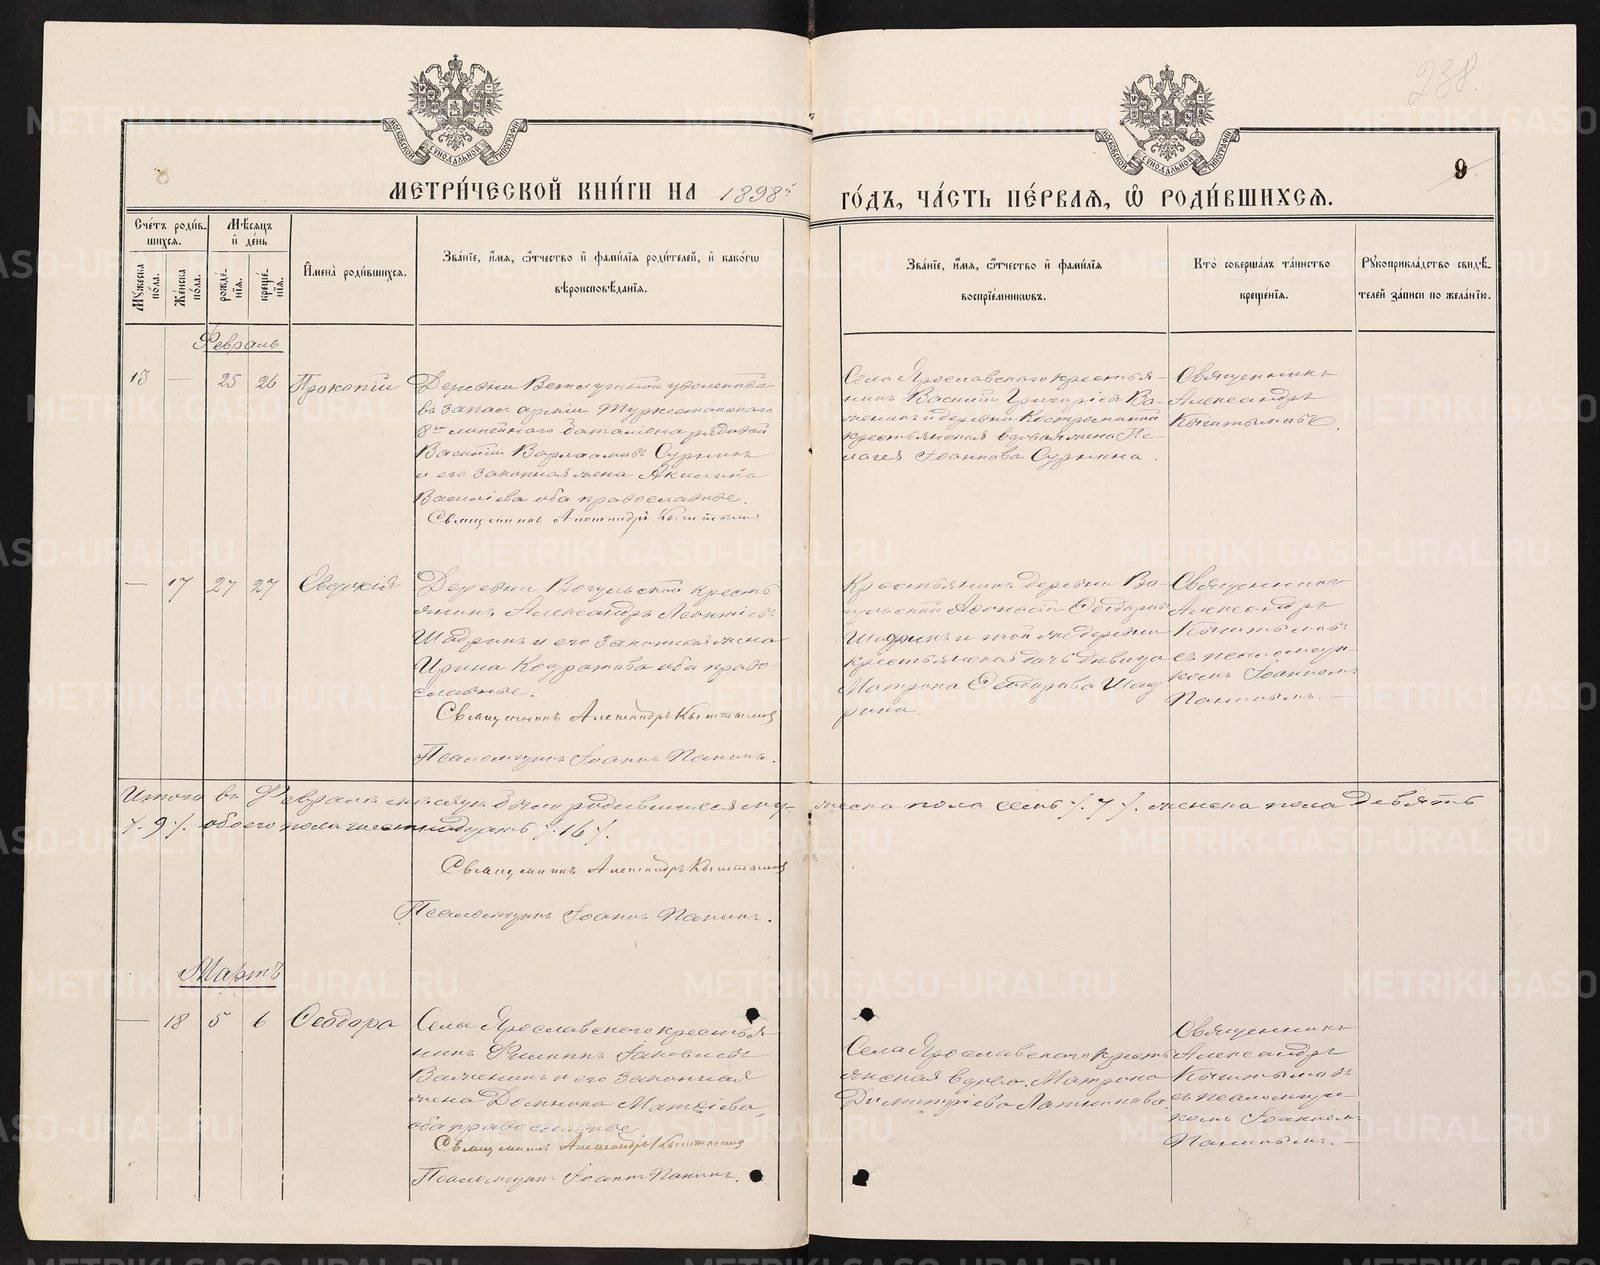 238.
9
МОСКОВСКОЙ СУНОДАЛЬНОЙ ТИПОГРАФІИ
МОСКОВСКОЙ СУНОДАЛЬНОЙ ТИПОГРАФІИ
МЕТРИ́ЧЕСКОЙ КНИ́ГИ НА 1898й ГО́ДЪ, ЧА́СТЬ ПЕ́РВАЯ, Ѡ РОДИ́ВШИХСЯ.
Сче́тъ роди́вшихся.
Мꙋ́жеска по́ла.
Же́нска по́ла.
Мѣ́сяцъ и де́нь
рожде́нїя.
креще́нїя.
И҆мена̀ роди́вшихся.
Зва́нїе, и҆́мя, ѻ҆́тчество и҆ фами́лїя роди́телей, и҆ како́гѡ
вѣроисповѣ́данїя.
Зва́нїе, и҆́мя, ѻ҆́тчество и҆ фами́лїя
воспрїе́мниковъ.
Кто̀ соверша́лъ та́инство
креще́нїя.
Рꙋкоприкла́дство свидѣ́-
телей за́писи по жела́нїю.
Февраль
13 — 25 26 Прокопій
Деревни Ветлугиной уволенный
въ запас арміи Туркестанскаго
8го линейнаго баталіона рядовой
Василій Варлаамовъ Сурнинъ
и его законная жена Акилина
Василіева оба православные.
Священникъ Александръ Кыштымовъ
Села Ярославскаго крестья-
нинъ Василій Григоріевъ Ва-
женинъ и деревни Костроминой
крестьянская вдова жена Пе-
лагея Іоаннова Сурнина.
Священникъ
Александръ
Кыштымовъ.
— 17 27 27 Евдокія
Деревни Вогульской кресть
янинъ Александръ Леонтіевъ
Шадринъ и его законная жена
Ирина Кодратова оба право-
славные.
Священникъ Александръ Кыштымовъ
Псаломщикъ Іоаннъ Папинъ.
Крестьянинъ деревни Во-
гульской Аѳонасій Ѳеодоровъ
Шадринъ и той же деревни
крестьянская дочь девица
Матрона Ѳеодорова Шад
рина.
Священникъ
Александръ
Кыштымовъ
съ псаломщи-
комъ Іоанномъ
Папинымъ. —
Итого въ Февралѣ месяцѣ было родившихся му- жеска пола семь /. 7 /. женска пола девять
/. 9 /. обоего пола шестнадцать /. 16 /.
Священникъ Александръ Кыштымовъ
Псаломщикъ Іоаннъ Папинъ.
Мартъ
— 18 5 6 Ѳеодора
Села Ярославскаго крестья
нинъ Филиппъ Іаковлевъ
Важенинъ и его законная
жена Домника Матѳіева,
оба православные
Священникъ Александръ Кыштымовъ
Псаломщикъ Іоаннъ Папинъ.
Села Ярославскаго кресть
янская вдова Матрона
Димитріева Латникова.
Священникъ
Александръ
Кыштымовъ
съ псаломщи-
комъ Іоанномъ
Папинымъ. —
METRIKI.GASO-URAL.RU